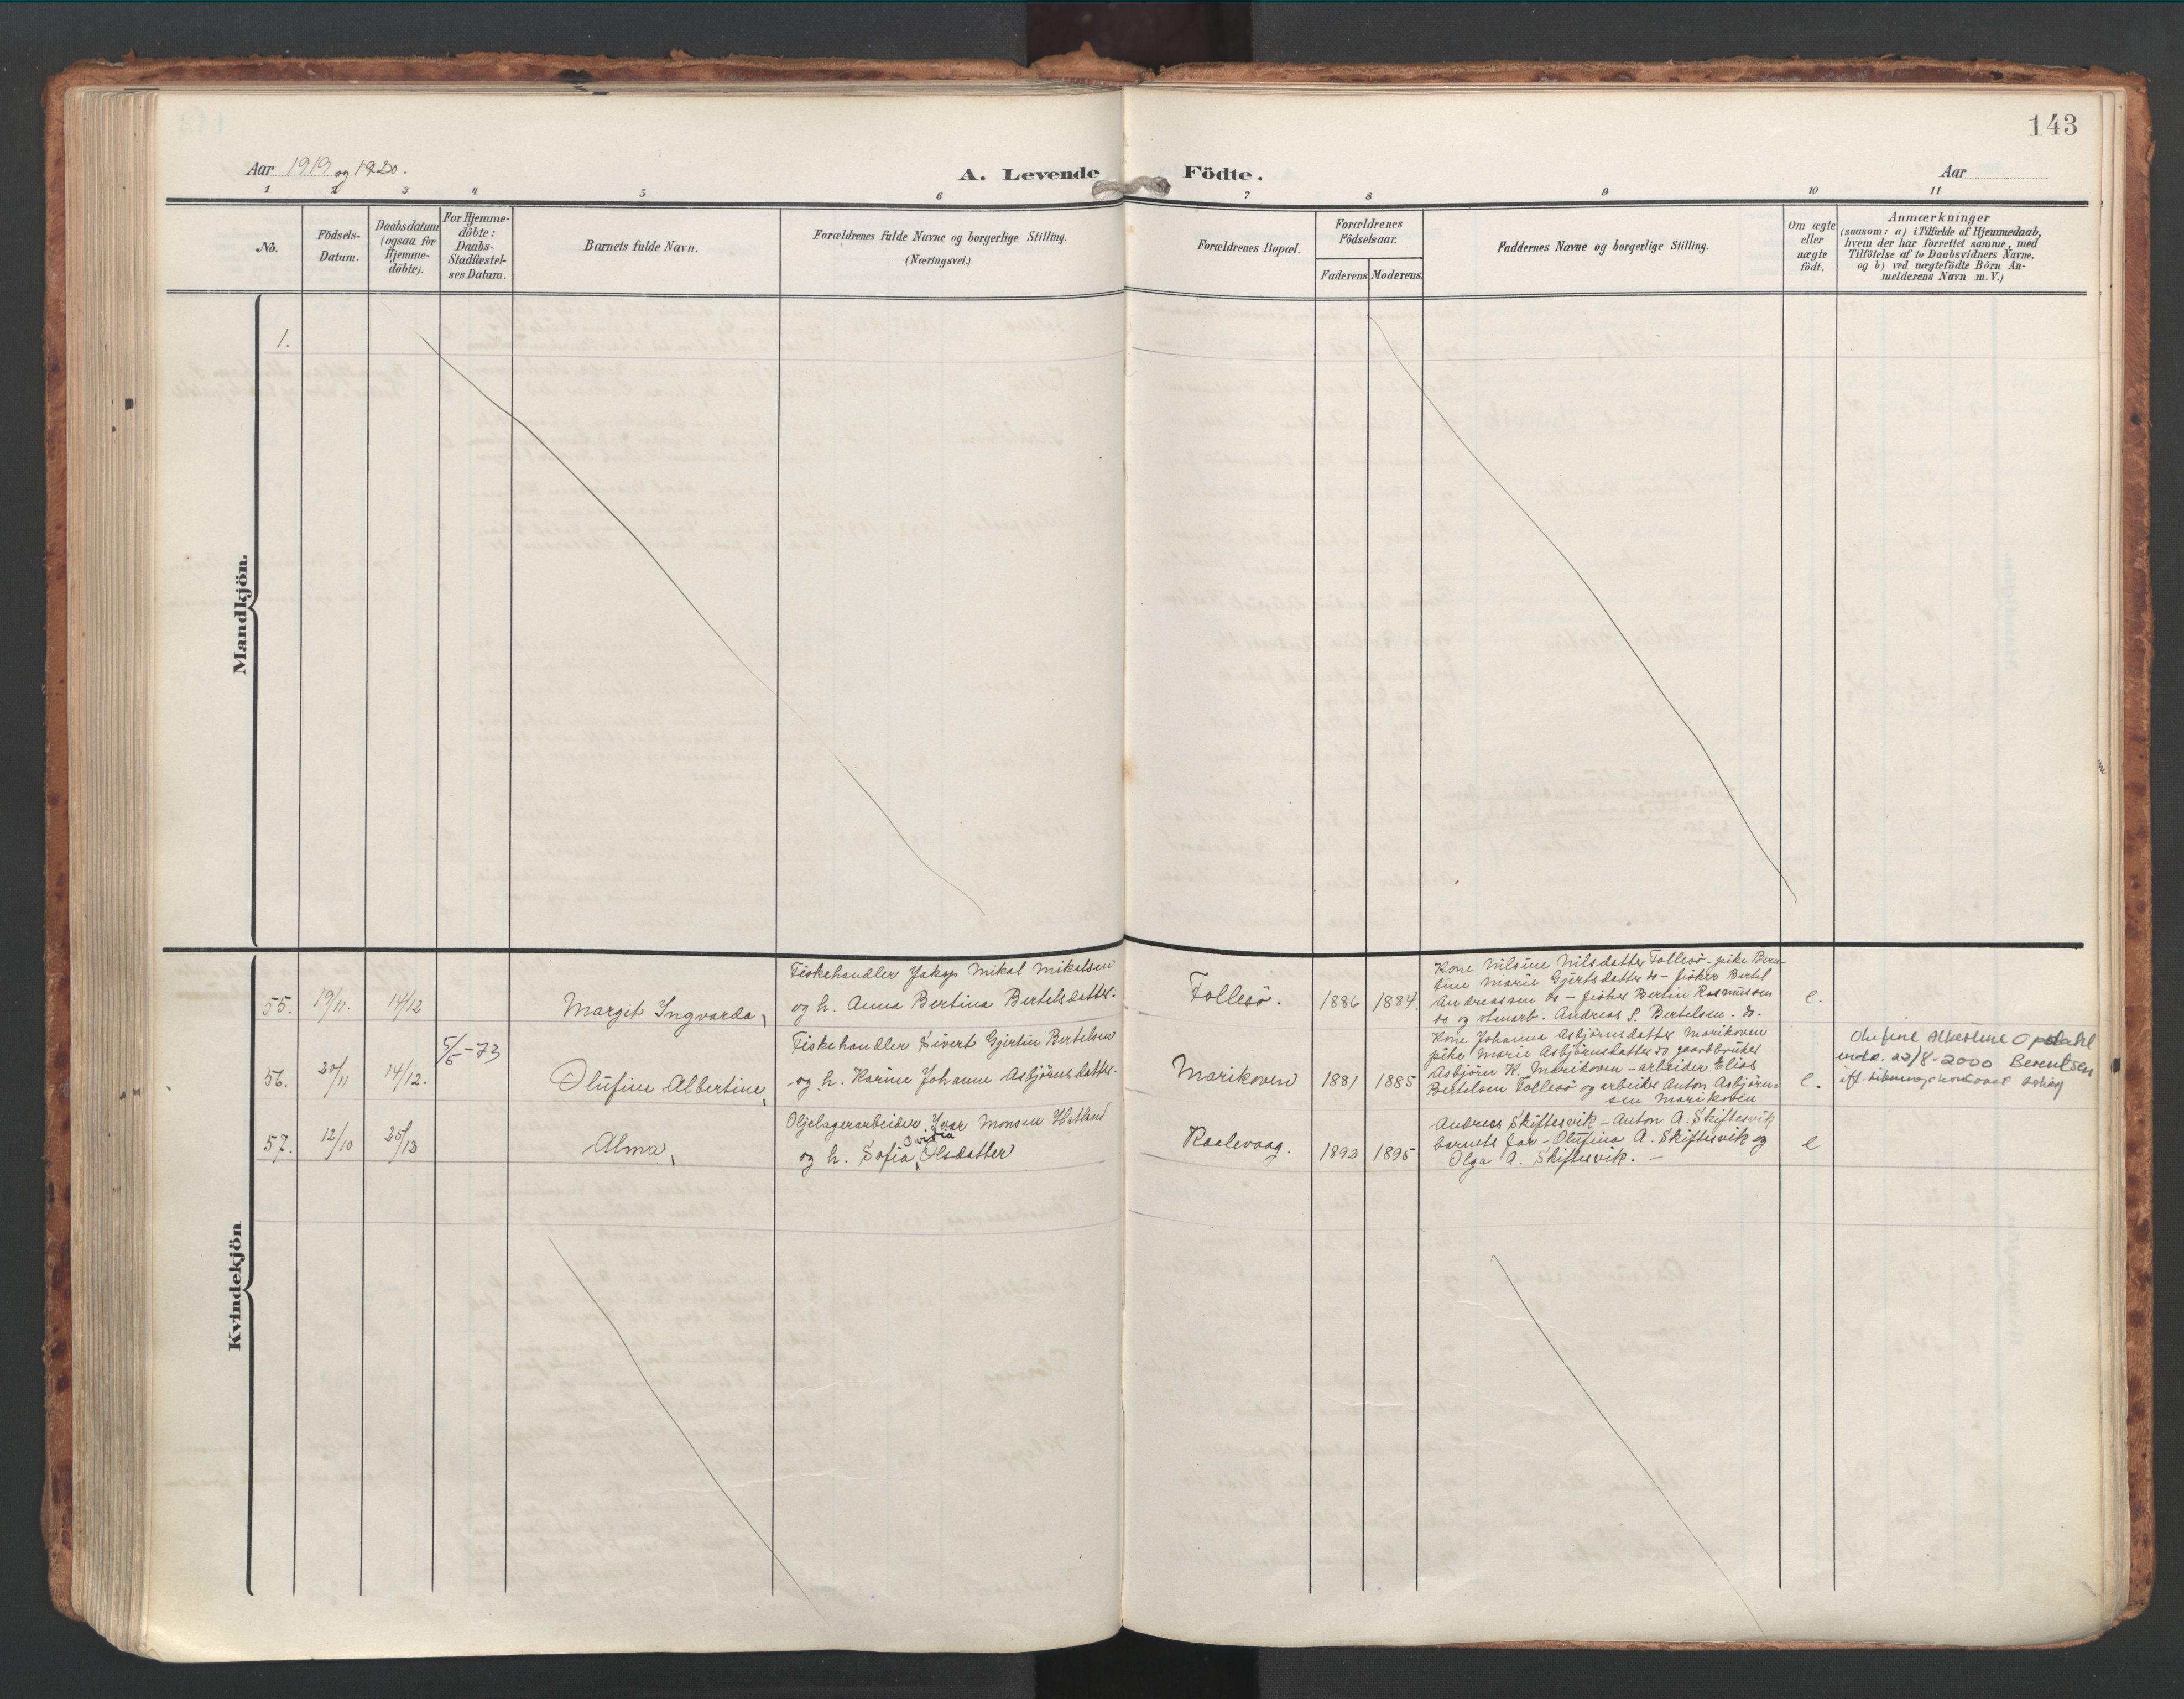 143
Aar 1919 og 1920.
A. Levende Födte.
Aar
1 2 3 4 5 6 7 8 9 10 11
No.
Födsels-
Datum.
Daabsdatum
(ogsaa for
Hjemme-
döbte).
For Hjemme-
döbte:
Daabs-
Stadfæstel-
ses Datum.
Barnets fulde Navn.
Forældrenes fulde Navne og borgerlige Stilling.
(Næringsvei.)
Forældrenes Bopæl.
Forældrenes
Födselsaar.
Faderens
Moderens
Faddernes Navne og borgerlige Stilling.
Om ægte
eller
uægte
födt.
Anmærkninger
(saasom: a) i Tilfælde af Hjemmedaab,
hvem der har forrettet samme, med
Tilföielse af to Daabsvidners Navne.
og b) ved uægtefödte Börn An-
melderens Navn m. V.)
Mandkjön.
1.
Kvindekjön
55.
19/11.
14/12
Margit Ingvarda,
Fiskehandler Jakop Mikal Mikelsen
og h. Anna Bertina Bertelsdatter.
Follesö.
1886
1884.
Kone Nilsine Nilsdatter Follesö - pike Beren-
tine Marie Gjertsdatter do - fisker Bertel
Andreassen do - fisker Bertin Rasmussen
do og stenarb. Andreas S. Bertelsen. do.
e.
56.
20/11
14/12.
5/5-73
Olufine Albertine,
Fiskehandler Sivert Gjertin Bertelsen
og h. Karine Johanne Asbjörnsdatter.
Marikoven
1881
1885
Kone Johanna Asbjörnsdatter Marikoven
pike Marie Asbjörnsdatter do gaardbruker
Asbjörn K. Marikoven - arbeider Elias
Bertelsen Follesö og arbeider Anton Asbjörn-
sen Marikoven
e.
Olufine Albertine Opdahl
22/8-2000 Berentsen
57.
12/10
25/12
Alma,
Oljelagerarbeider Ivar Monsen Hatland
og h. Sofia Ovidia Olsdatter
Raalevaag.
1892
1895
Andreas Skiftesvik - Anton A. Skiftesvik
barnets far - Olufina A. Skiftesvik og
Olga A. Skiftesvik. -
e